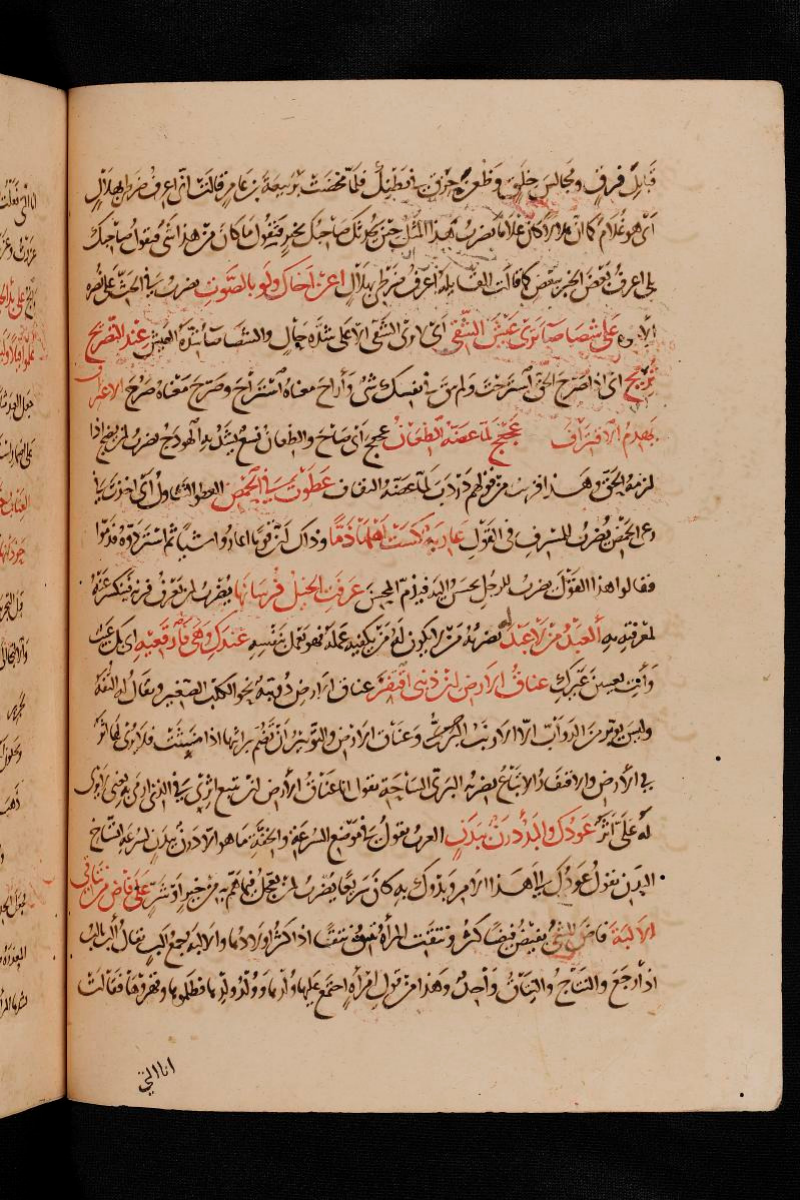 قبائل فرق ومجالس حلق وظعن حزق
اي هو غلام كان هلالا كان غلاما يضرب هذا المثل حين يحدثك صاحبك بخبر فتقول ما كان من هذا شيء فيقول صاحبك
بلى اعرف بعض الخبر ببعض كما قالت القايلة اعرف ضرطي بهلال اعن اخاك ولو بالصوت يضرب في الحث على نصرة
على شصاصا ترى عيش الشقي اي لا ترى الشقي الا على شدة حال والشصاصا شدة العيش عند التصريح
تريح اي اذا صرح الحق استرحت ولم يبق في نفسك شيء وأراح معناه استراح وصرح معناه صرح الاعتراف
يهدم الاقتراف عجعج لما عضه الظعان عجعج اي صاح والظعان نسع يشد به الهودج يضرب لمن يضج اذا
لزمه الحق وهذا قريب من قولهم دردب لما عضه الثقاف عطوت في الحمض العطو التناول اي اخذت في
رعي الحمض يضرب للمسرف في القول عارية اكسبت اهلها ذما وذاك ان قوما اعاروا شيا ثم استردوه فذموا
فقالوا هذا القول يضرب للرجل يحسن اليه فيذم المحسن عرفت الخيل فرسانها يضرب لمن يعرف قرنه فينكسر عنه
لمعرفته به العبد من لا عبد له يضرب لمن لا يكون له من يكفيه عمله فهو يعمل بنفسه عندك وهي فارقعيه اي بك عيب
وأنت تعيبين غيرك عناق الارض ان ذنبي اقتفر عناق الارض دويبة نحو الكلب الصغير ويقال له التفة
وليس يوبر من الدواب الا الارانب وعناق الارض والتوبير ان تضم براثنها اذا مشت فلا يرى لها اثر
في الارض والاقتفار الاتباع يضربه البريء الساحة يقول انا عناق الارض ان تتبع اثري في الذي ارمى به يعني لا يرى
له على اثر عودك والبدء درن ببدن العرب تقول في موضع السرعة والخفة ما هو الا درن ببدن لسرعة اتساخ
البدن يقول عودك الى هذا الامر وبدؤك به كان سريعا يضرب لمن يعجل فيما هم به من خير او شر على فاض من نتاقي
الالبة فاض الشيء يفيض فيضا كثر ونتقت المرأة تنتق نتقا اذا كثر اولادها والالبة جمع آلب يقال ألب يالب
اذا رجع والنتاج والنتاق واحد وهذا من قول امرأة اجتمع عليها ولدها وولد ولدها فظلموها وقهروها فقالت
انا التي